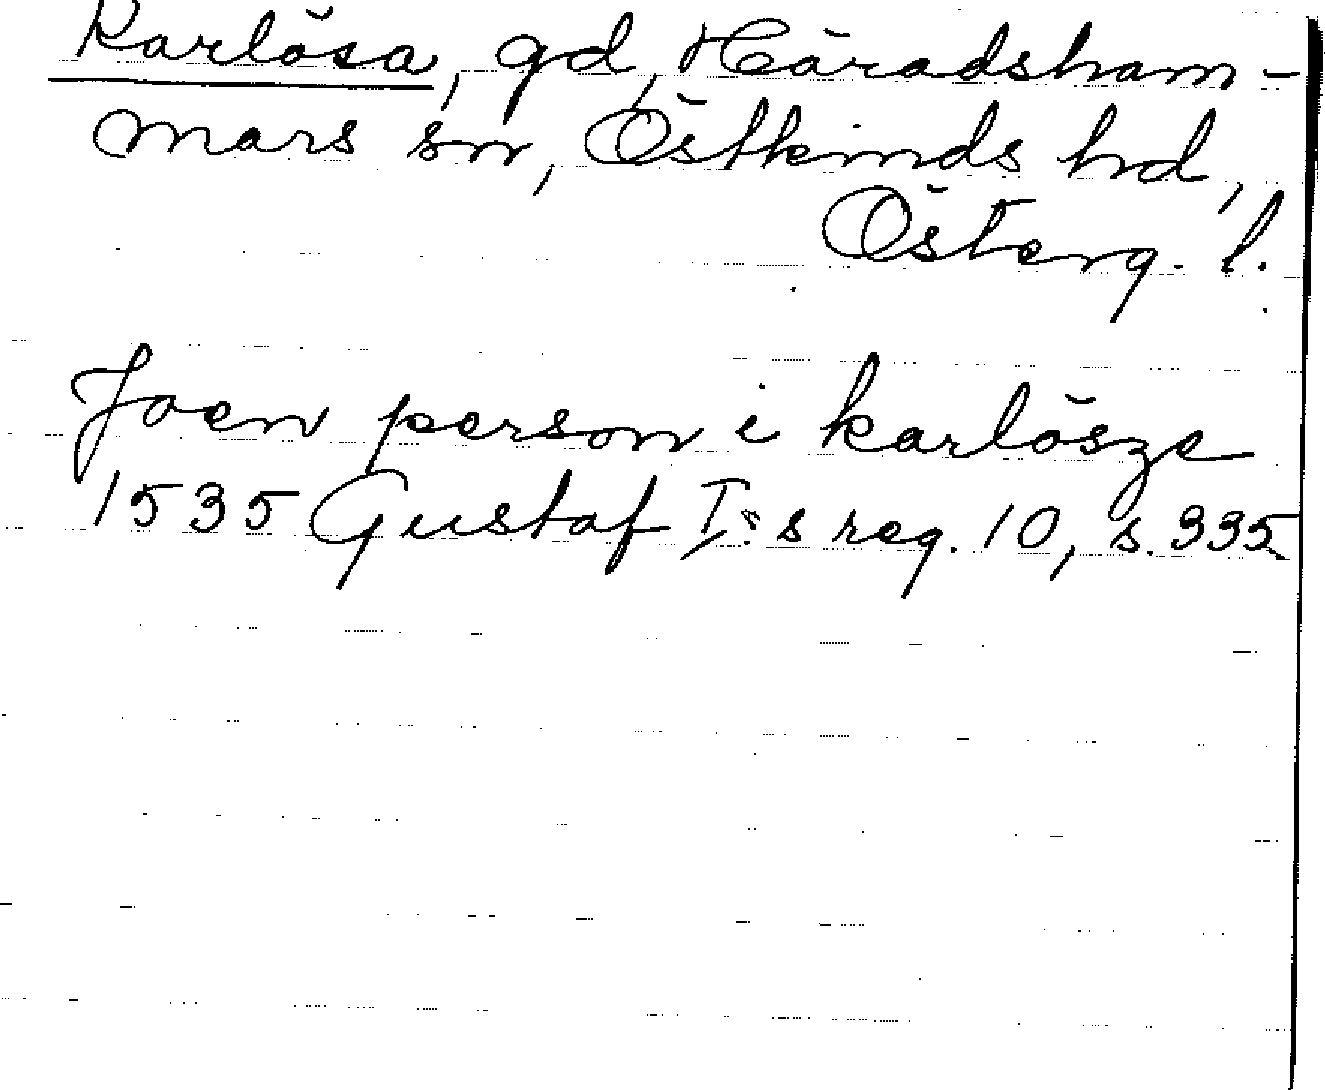 Karlösa, gd, Häradsham-
mars sn, Östkinds hd,
Österg. l.
Joen person i karlösze
1535 Gustaf I:s reg. 10, s. 335